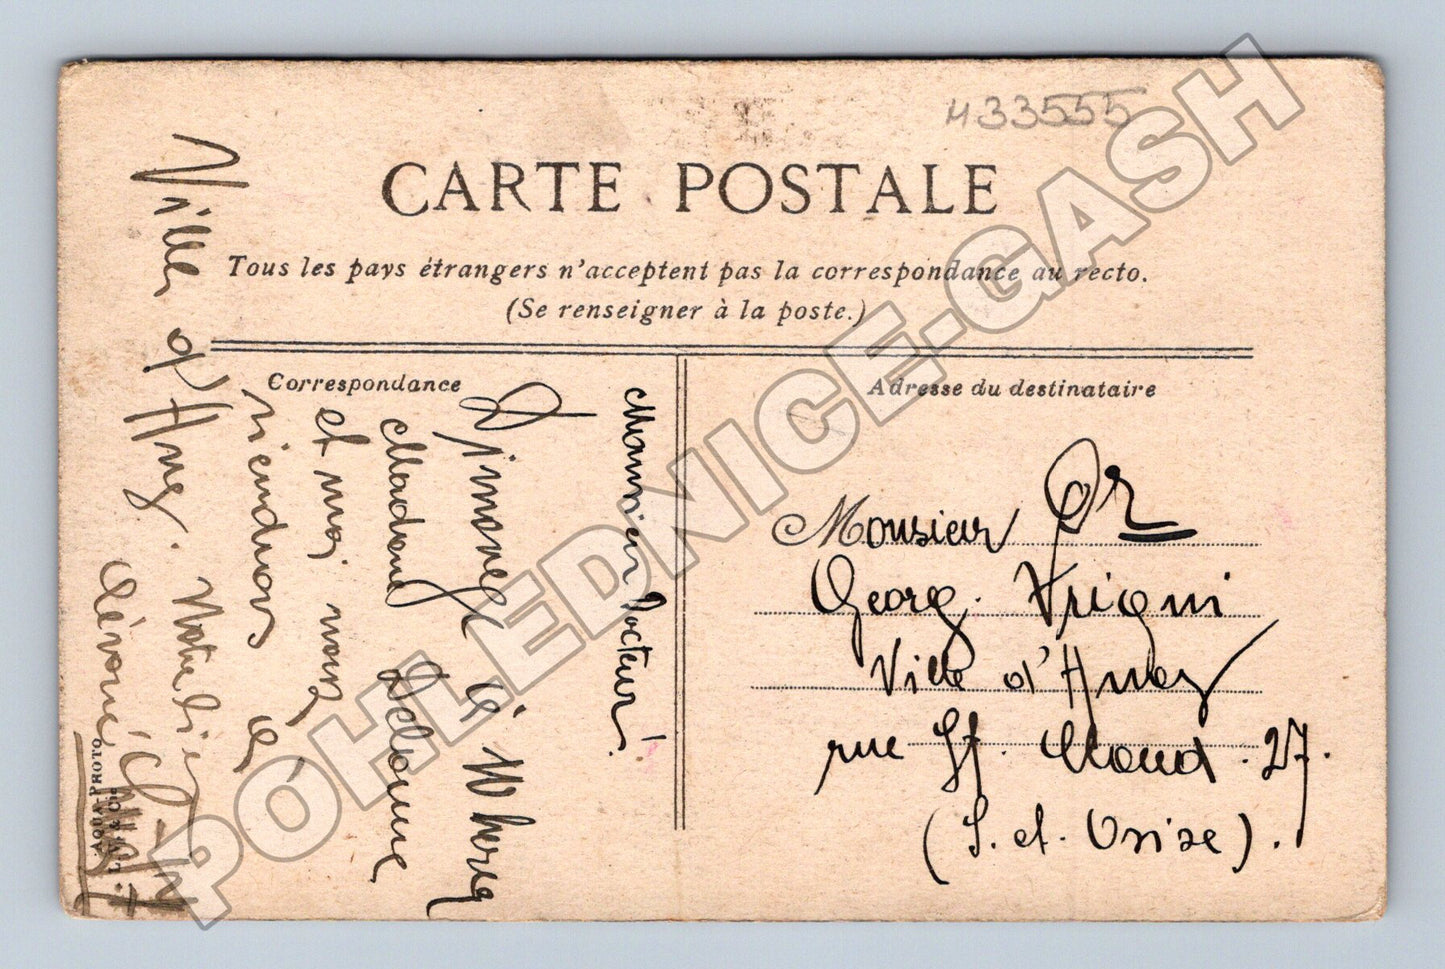 433555
CARTE POSTALE
Tous les pays étrangers n'acceptent pas la correspondance au recto.
(Se renseigner à la poste.)
Correspondance
Monsieur Docteur!
Dimanche
Madame Delorme
et moi nous
viendrons à
Ville d'Hvay.
dévoué
Adresse du destinataire
Monsieur Dr
Georg. Vrigni
Ville d'Hvay
rue St. Cloud. 27.
(S. et. Onise).
AQUA-PHOTO
L.V. & Cie
POHLEDNICE-GASH